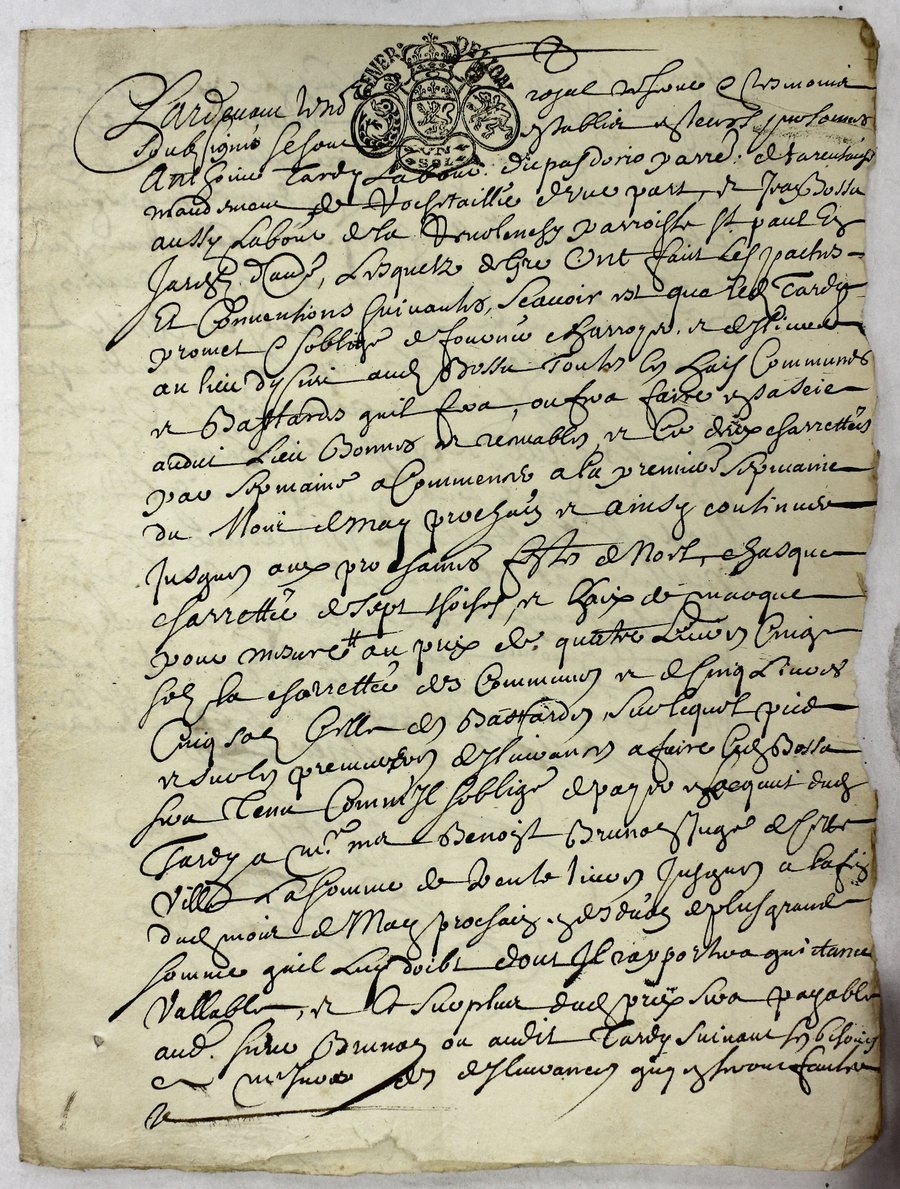 GENER. DE LYON
VN SOL
Pardevant le no royal & tesmoins
soubsigné se sont establis en leurs personnes
Anthoine Tardy Labour. du pas de rio parre. de tarentaize
mandement de Rochetaillée d'une part, et Jean Bossu
aussy Labour de la parroisse St. paul En
Jarez d'autre, Lesquelz de Gré Ont faict Les pactes
Et Conventions suivantes, Scavoir est que led Tardy
promet & soblige de fournir charroyer et deslivrer
au lieu d'ysieu aud Bossu Toutes les Communes
et Bastardes quil fera, ou fera faire
audit Lieu Bonnes et et Ce deux charrettées
par Sepmaine a Commencer a la premiere Sepmaine
du Mois de may prochain et ainsy continuer
Jusques aux prochaines festes de Noel, chasque
charrettée de sept thoises, et de marque
pour mesure au prix de quattre Livres Cinq
solz la charrettée des Communes et de Cinq Livres
Cinq solz Celle des Bastardes, sur lequel prix
et sur les premieres deslivrances a faire led Bossu
sera Tenu Comm'Jl soblige de payer en lacquit dud
Tardy a mre Benoist Brunon Juge de Cette
Ville La somme de trente livres Jusques a la fin
dud mois de May prochain, de plus grande
somme quil Luy doibt dont Jl rapportera quictance
Vallable, et Le surplus dud prix sera payable
aud. sieur Brunon ou audit Tardy suivant ses besoins
et mesure des deslivrances